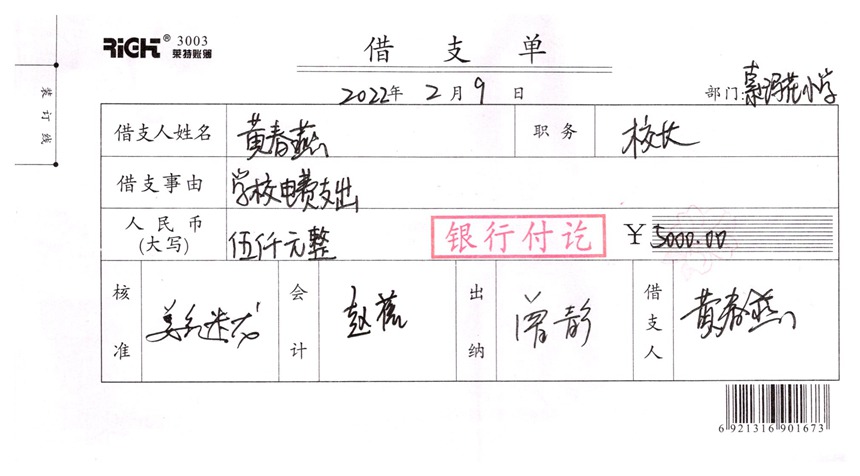 RiGHT® 3003
莱特账簿
借支单
2022年2月9日 部门:
装订线
借支人姓名 黄春燕 职务 校长
借支事由 学校电费支出
人民币(大写) 伍仟元整 银行付讫 ¥5000.00
核准 会计 赵蓉 出纳 曾静 借支人 黄春燕
6 921316 901673